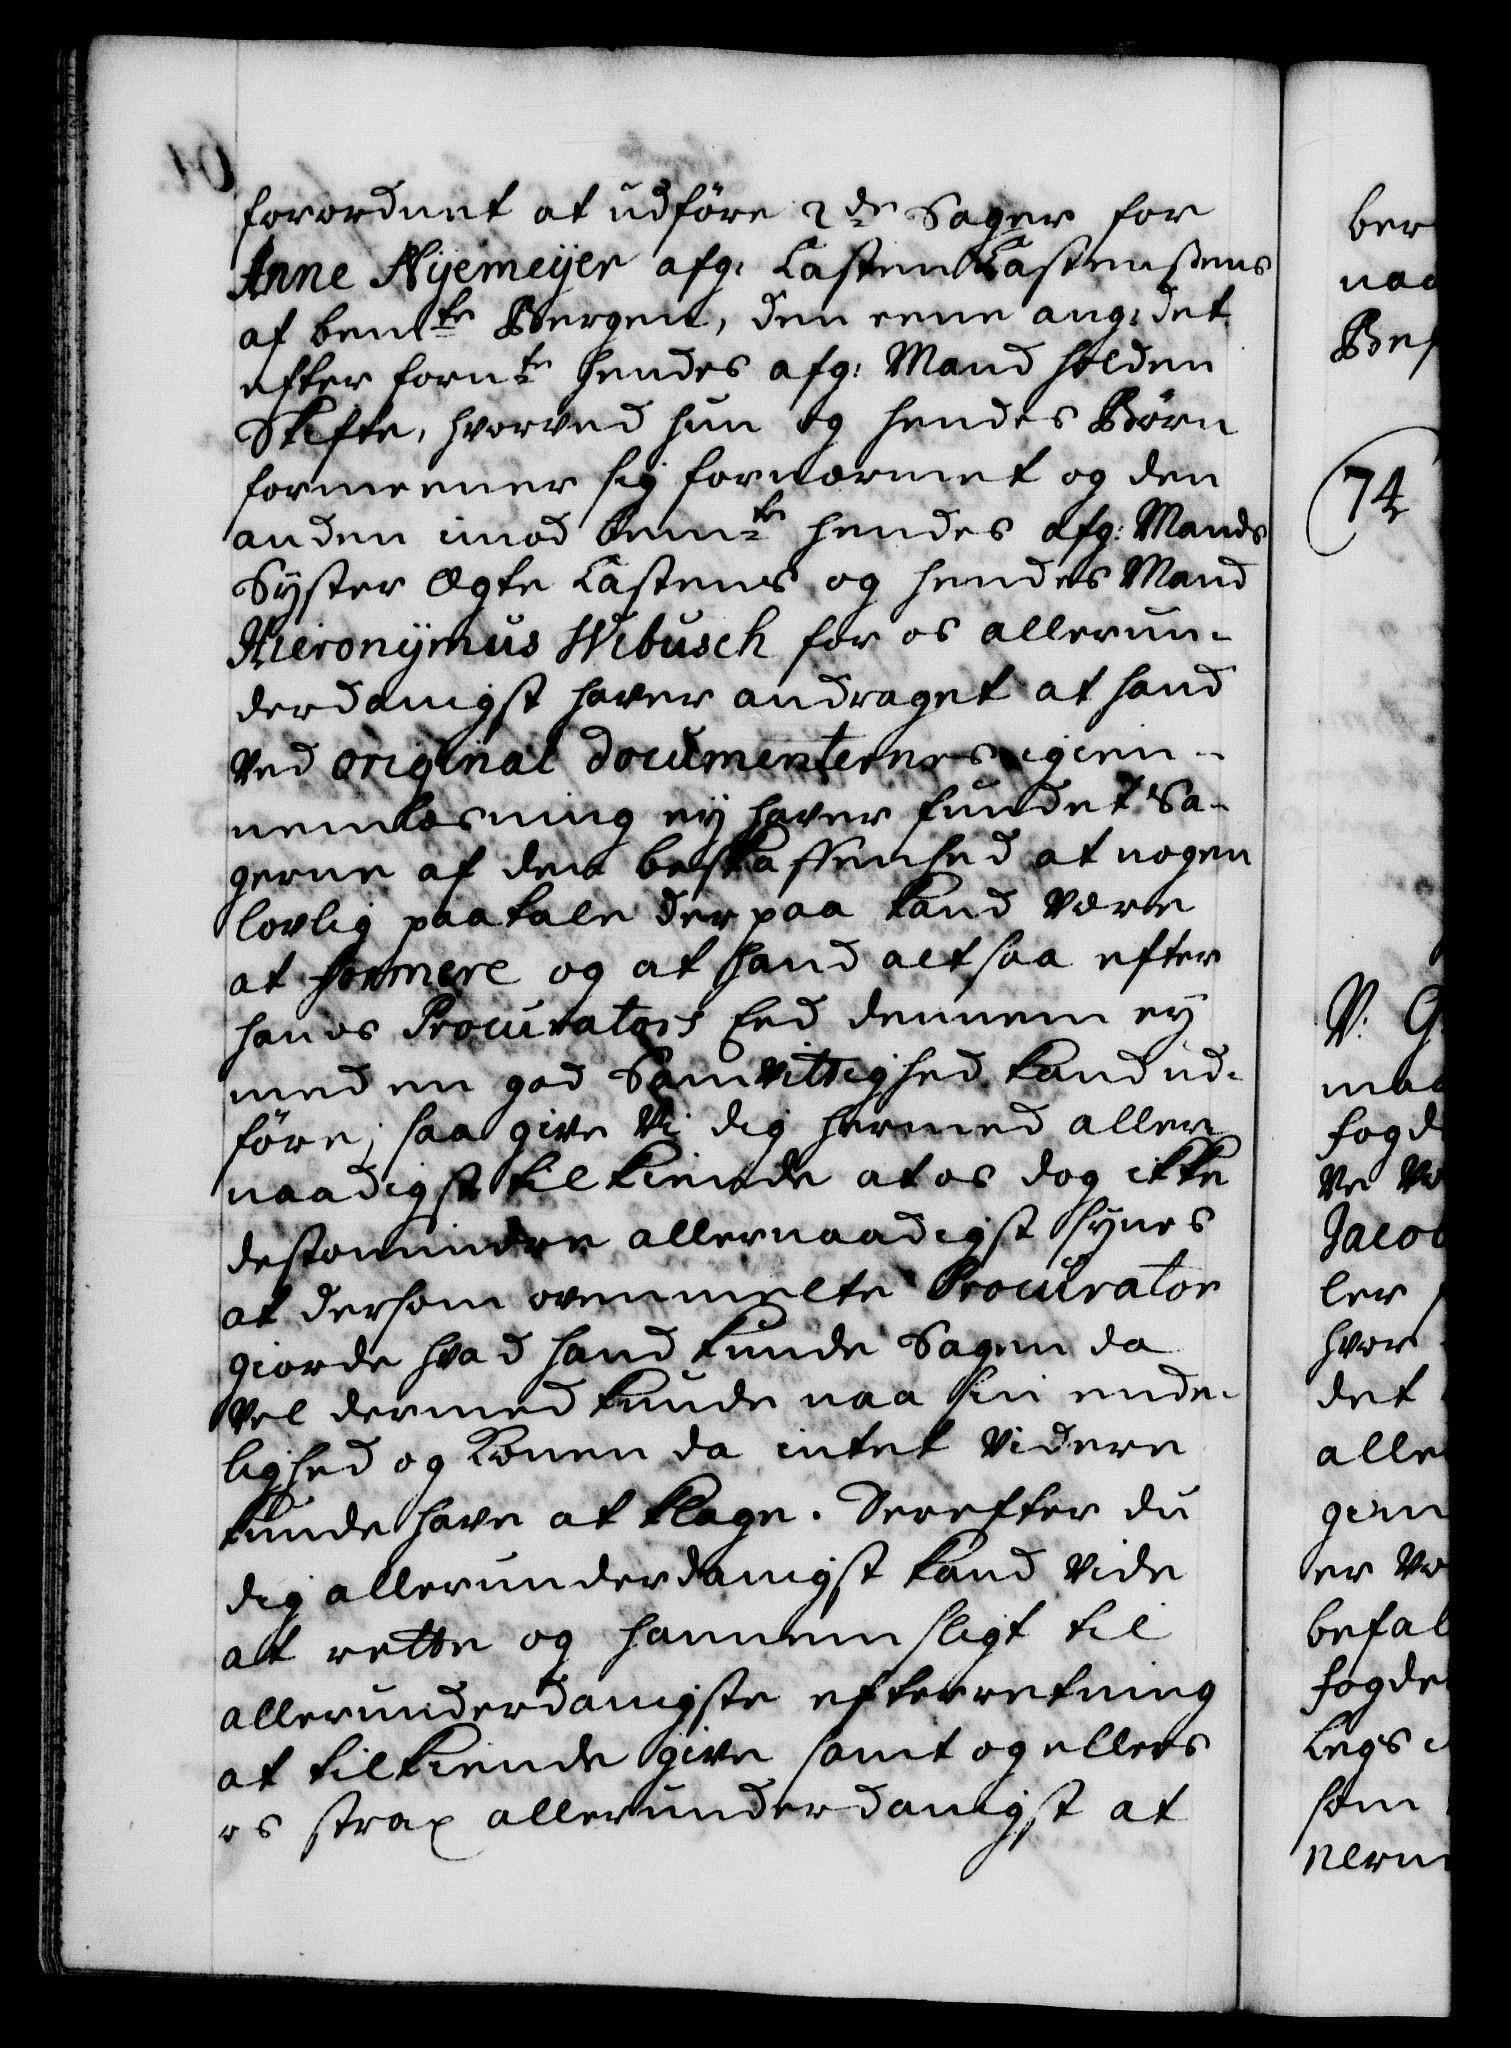 forordnet at udföre 2de Sager for
Anne Nyemeyer afg: Casten Castensens
af bemte Bergen, den eene ang: det
efter fornte hendes afg: Mand holden
Skifte, hvorved hun og hendes Børn
formeener sig fornærmet og den
anden imod bemte hendes afg: Mands
Syster Ægte Castens og hendes Mand
Hieronymus Wibusch for os allerun-
derdanigst haver andraget at hand
ved original documenternes igien-
nemlæsning ey haver fundet Sa-
gerne af den beskaffenhed at nogen
lovlig paatale der paa kand være
at formere og at hand altsaa efter
hans Procurators Eed dennem ey
med en god Samvittighed kand ud-
före; saa give Vi dig hermed aller
naadigst tilkiende at os dog ikke
destomindre allernaadigst synes
at dersom ovenmelte Procurator
giorde hvad hand kunde Sagen da
vel dermed kunde naa sin ende-
lighed og Konen da intet videre
kunde have at klage. Derefter du
dig allerunderdanigst kand vide
at rette og hannem sligt til
allerunderdanigste efterretning
at tilkiende give samt og ellers
os strax allerunderdanigst at
ber
naa
Bef
74
V. G.
maa
fogd
Jacob
ler
hvor
det
alle
gien
befal
fogde
som